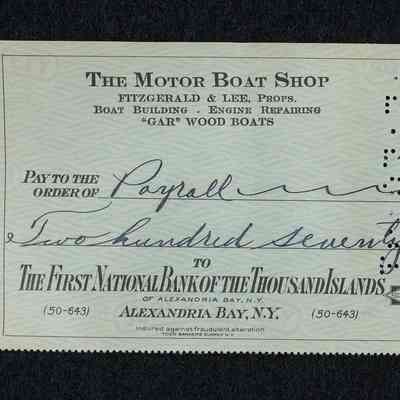 THE MOTOR BOAT SHOP
FITZGERALD & LEE, PROPS.
BOAT BUILDING - ENGINE REPAIRING
"GAR" WOOD BOATS
PAY TO THE
ORDER OF Payroll
Two hundred seventy
TO
THE FIRST NATIONAL BANK OF THE THOUSAND ISLANDS
OF ALEXANDRIA BAY, N.Y.
(50-643) ALEXANDRIA BAY, N.Y. (50-643)
Insured against fraudulent alteration